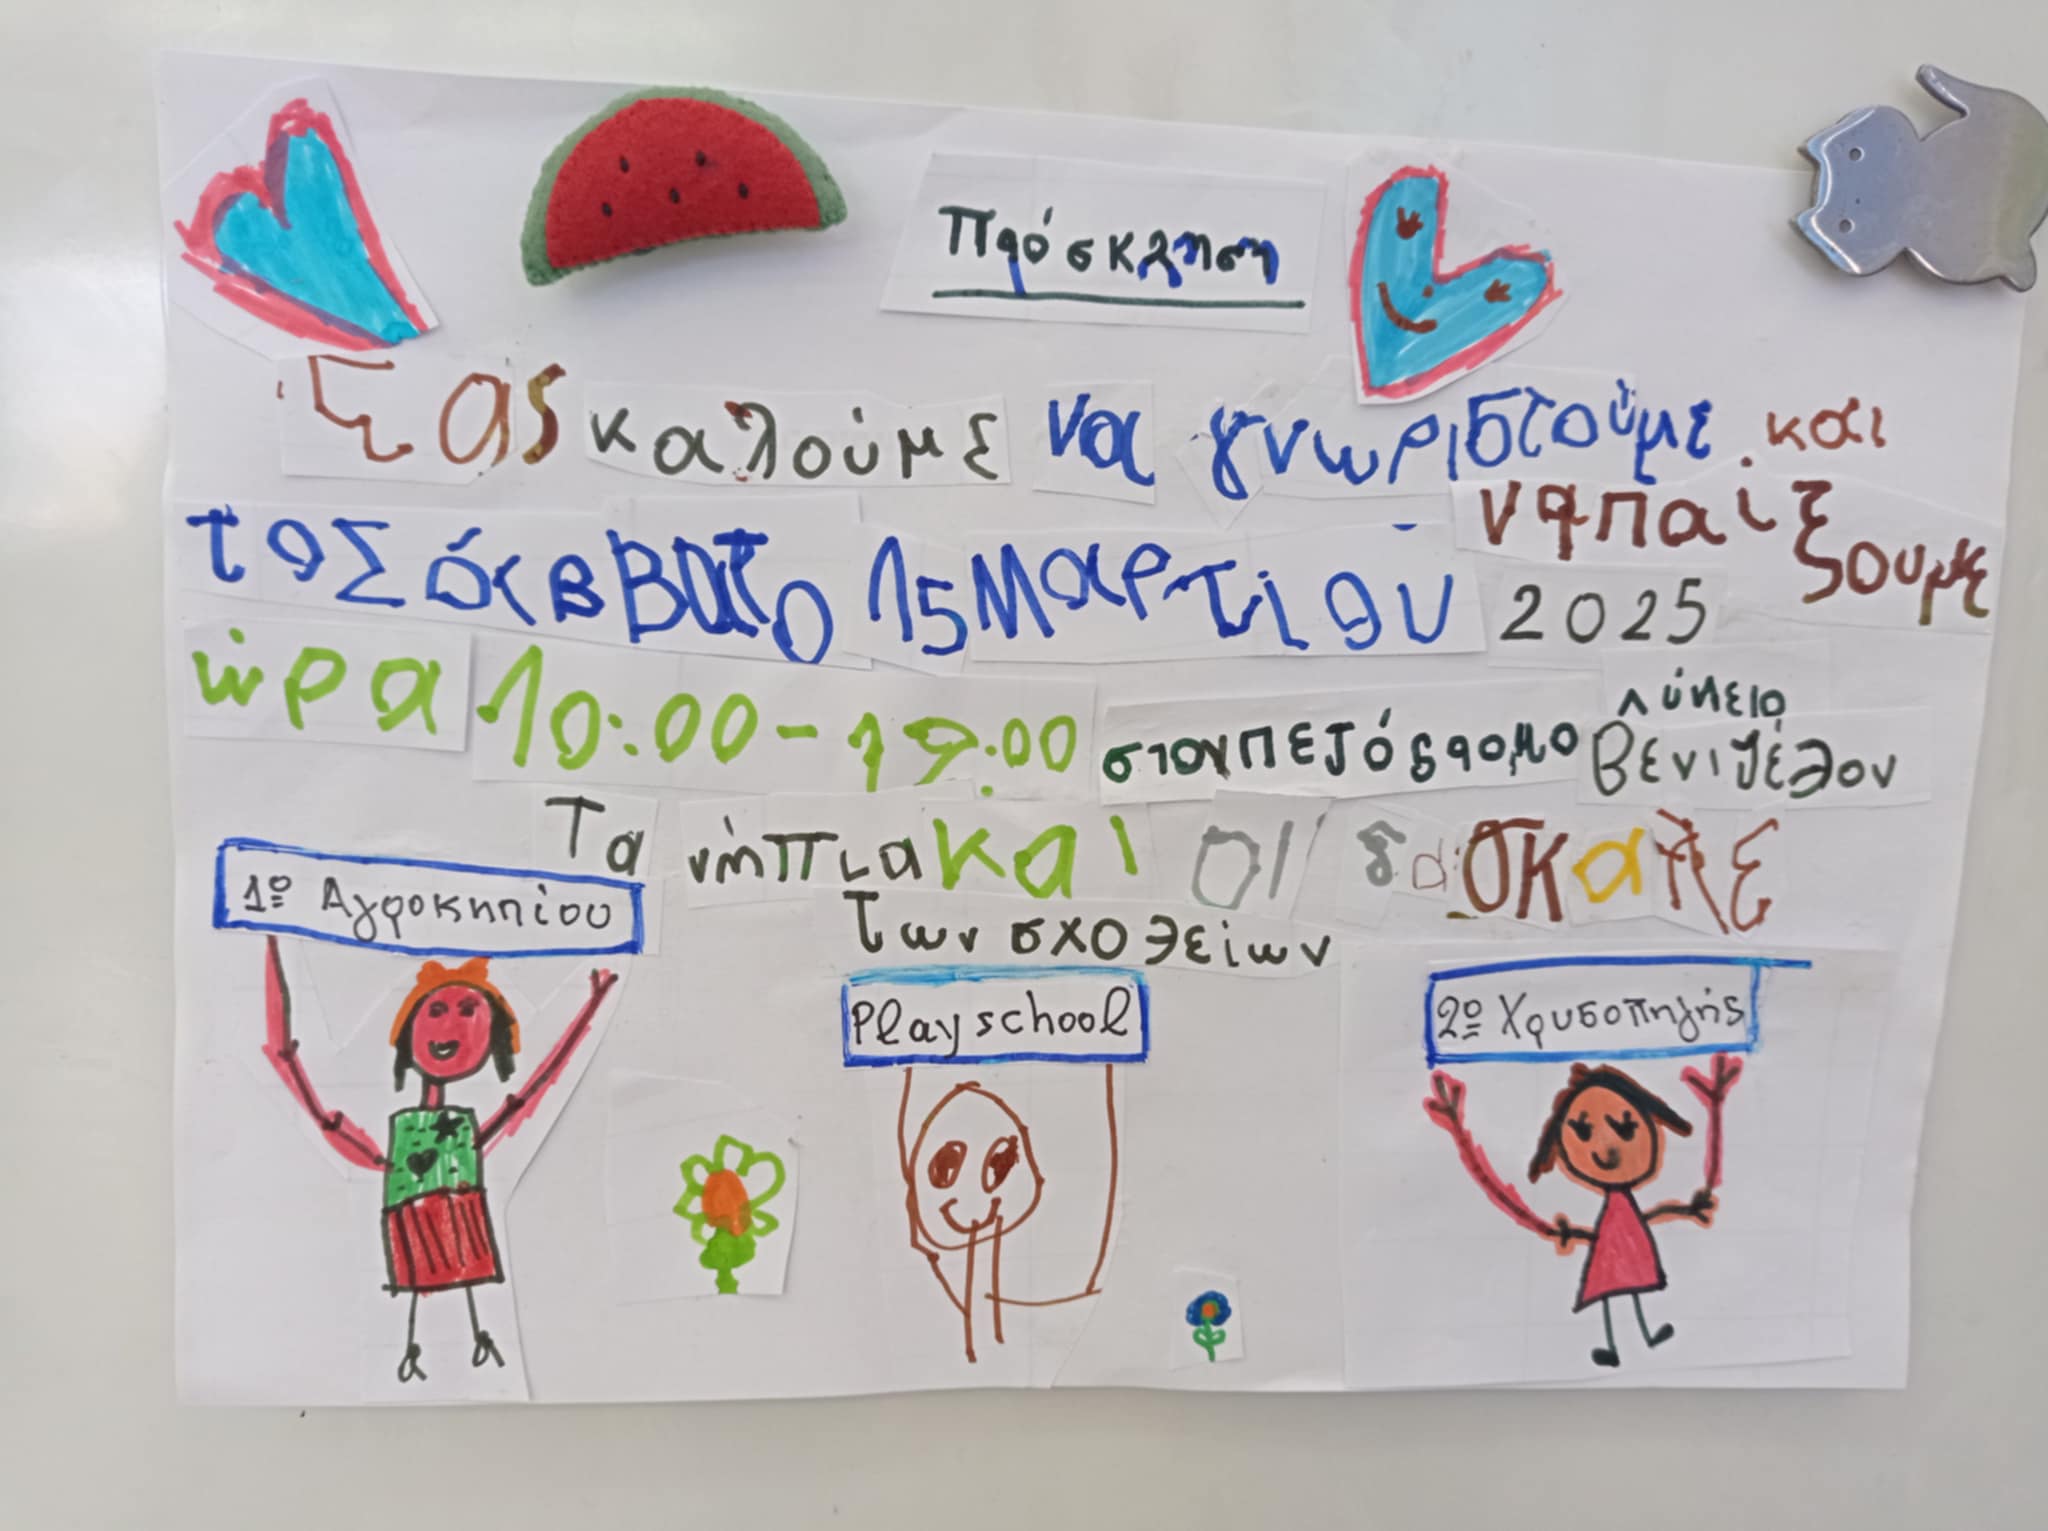 Πρόσκληση
Σας καλούμε να γνωριστούμε και
να παίξουμε
το Σάββατο 15 Μαρτίου 2025
ώρα 10:00 - 19:00 στον πεζόδρομο Λύκειο
Βενιζέλου
Τα νήπια και οι δασκάλε
των σχολείων
1º Αγροκηπίου
Playschool
2º Χρυσοπηγής